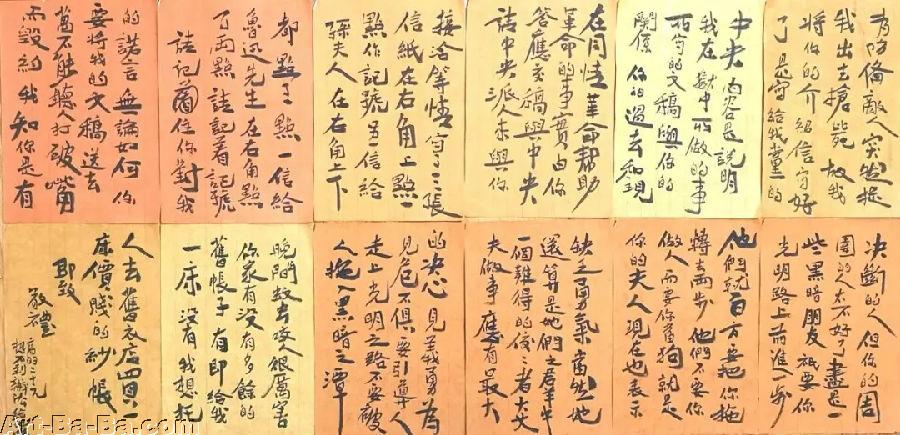 为防備敵人突然提
我出去搶毙 故我
将你的介紹信写好
了 是写給我黨的
中央 內容是説明
我在獄中所做的事
所有的文稿與你的
關係 你的過去和現
在同情革命幫助
革命的事實 由你
答應交稿與中央
請中央派人来與你
接洽等情 写了三張
信紙在右角上點一
點作記號 另一信給
孫夫人在右角上下
都點了一點 一信給
魯迅先生在右角點
了两點 請記着記號
請記 住你對我
的諾言 無論如何你
要将我的文稿送去
萬不能聽人打破嘴
而毀約 我知你是有
决斷的人 但你的周
圍的人太不好了 盡是一
些黑暗朋友 祇要你
光明路上前進一步
他們就百方 把你拖
轉 步 他們不要你
做人而要你當狗 就是
你的夫人現在也表示
缺乏勇氣 當然她
還算是她們之群中
一個難得的佼佼者 大丈
夫做事 應有最大
的决心 見義勇為
見危不俱 要引導人
走上光明之路 不要被
人拖入黑暗之潭
晚間蚊子咬很厲害
你家有没有多餘的
舊帳子 有即給我
一床 没有 我想託
人去舊衣店 買一
床價賤的紗帳
即致
敬禮
Art-Ba-Ba.com